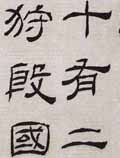 十有二
狩殷國